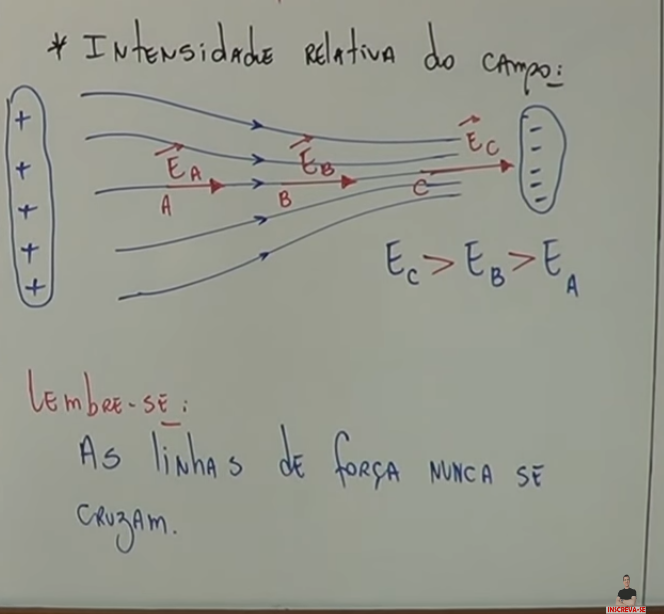 * INTENSIDADE RELATIVA DO CAMPO:
+ + + + +
E_A E_B E_C
A B C
- - - - -
E_C > E_B > E_A
LEMBRE-SE:
AS LINHAS DE FORÇA NUNCA SE
CRUZAM.
INSCREVA-SE